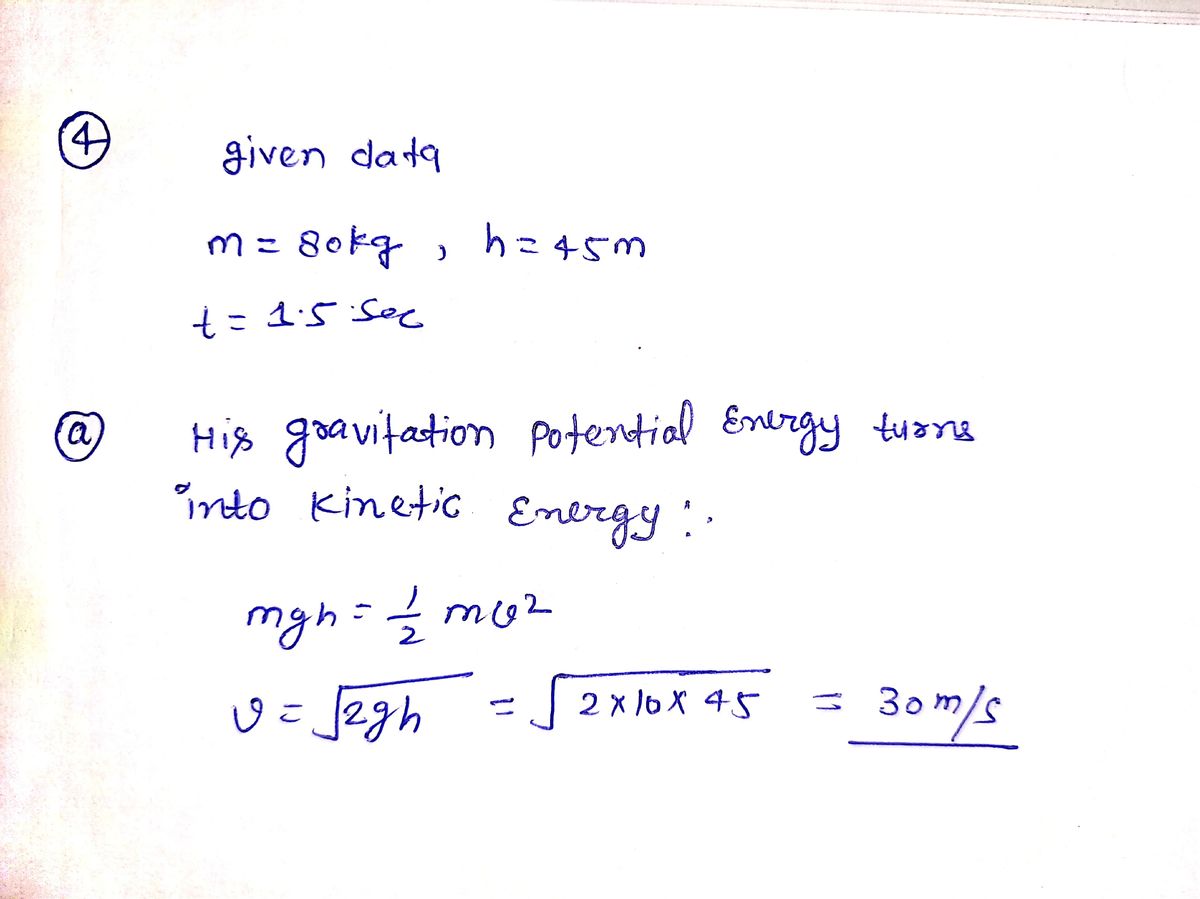 ④ given data
m = 80kg , h = 45m
t = 1.5 sec
ⓐ His gravitation Potential Energy turns
into Kinetic Energy :.
mgh = 1/2 mv²
v = √2gh = √2×10×45 = 30 m/s